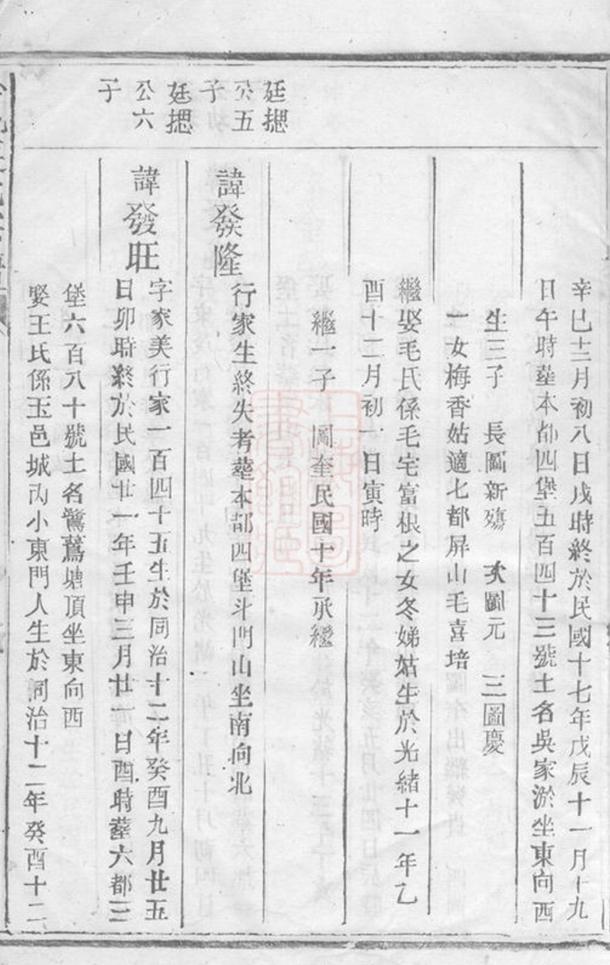 辛巳十二月初八日戌時終於民國十七年戊辰十一月十九
日午時塟本都四堡五百四十三號土名吳家淤坐東向西
生三子 長圖新殤 次圖元 三圖慶
一女梅香姑適北都屏山毛喜培
繼娶毛氏係毛宅富根之女冬娣姑生於光緒十一年乙
酉十二月初一日寅時
繼一子 圖奎民國十年承繼
廷摁
公五
子
諱發隆
行家生終失考塟本都四堡斗門山坐南向北
廷摁
公六
子
諱發旺
字家美行家一百四十五生於同治十二年癸酉九月廿五
日卯時終於民國廿一年壬申三月廿一日酉時塟六都三
堡六百八十號土名鵞鵞塘頂坐東向西
娶王氏係玉邑城內小東門人生於同治十二年癸酉十二